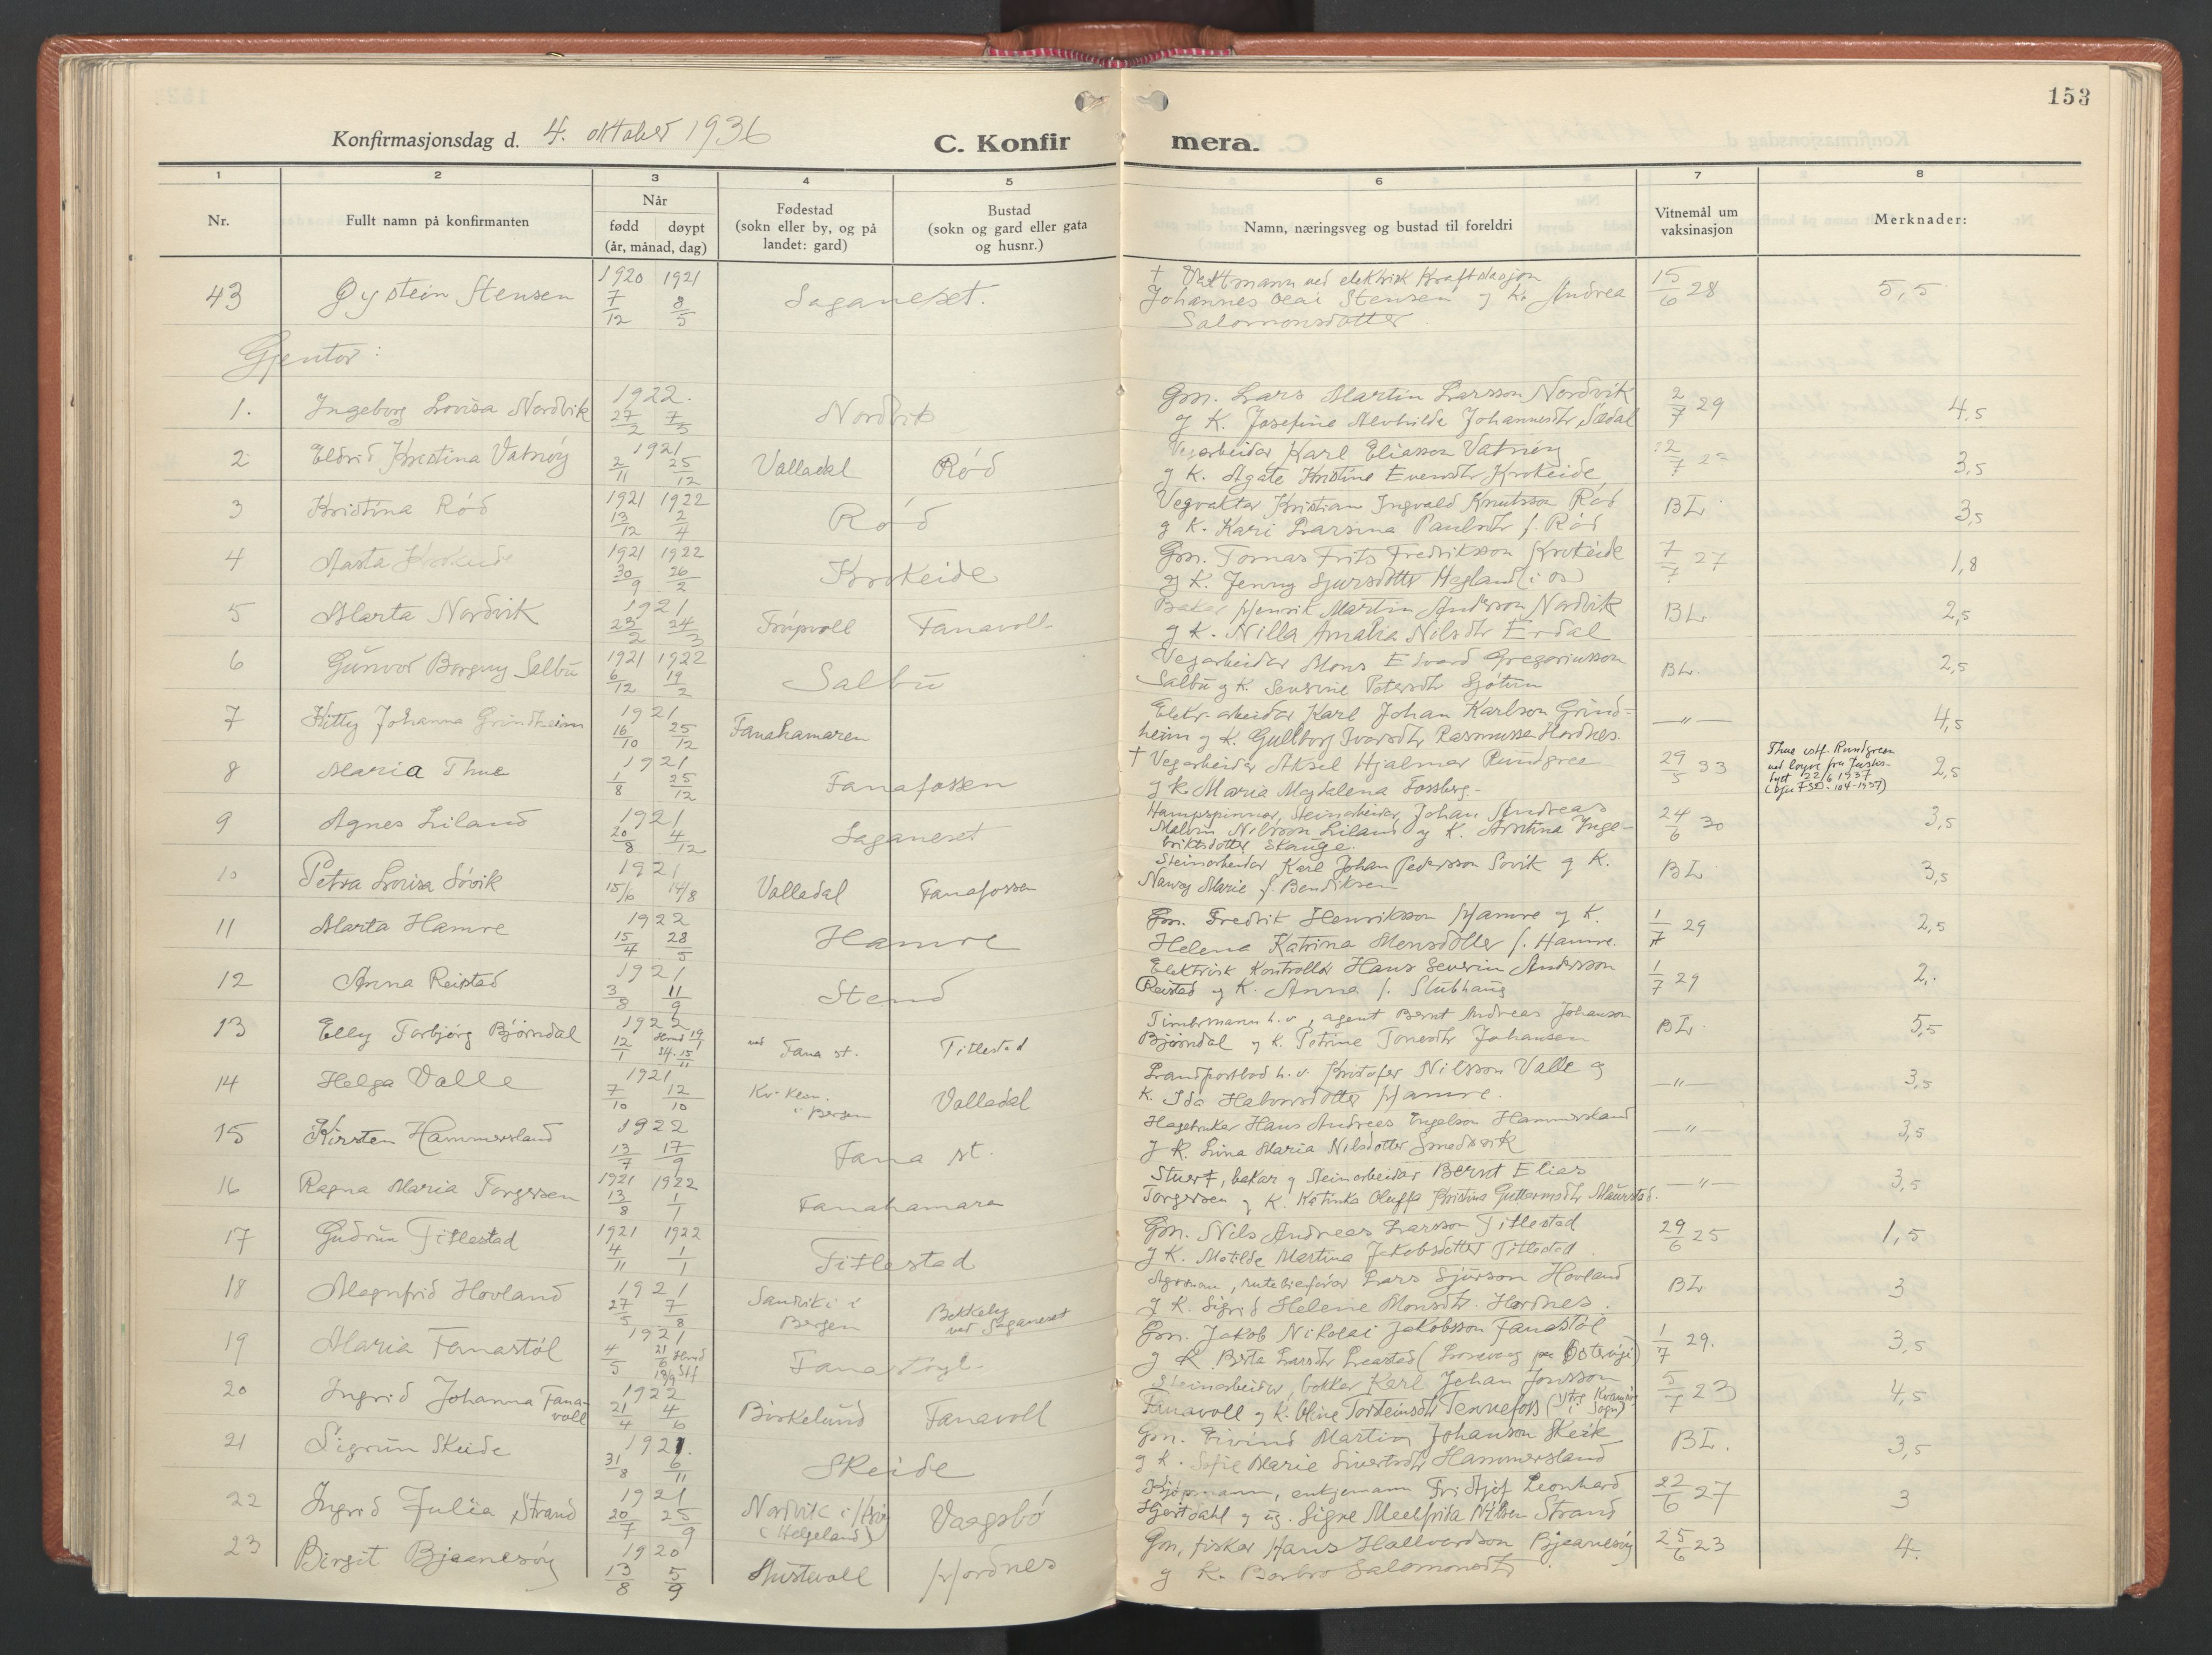 153
Konfirmasjonsdag d. 4. oktober 1936
C. Konfirmera.
1 2 3 4 5 6 7 8
Nr. Fullt namn på konfirmanten
Når
fødd døypt
(år, månad, dag)
Fødestad
(sokn eller by, og på
landet: gard)
Bustad
(sokn og gard eller gata
og husnr.)
Namn, næringsveg og bustad til foreldri
Vitnemål um
vaksinasjon
Merknader:
43 Øystein Stensen 1920 7/12 1921 8/5 Saganeset. † Vaktmann ved elektrisk Kraftstasjon
Johannes Olai Stensen og K. Andrea
Salomonsdotter 15/6 28 5,5
Gjentor:
1. Ingeborg Lovisa Nordvik 1922. 27/2 7/5 Nordvik Gm. Lars Martin Larsson Nordvik
og K. Josefine Alvhilde Johannesdtr Sædal 2/7 29 4,5
2 Eldrid Kristina Vatnøy 1921 2/11 25/12 Valladal Rød Vegarbeidar Karl Eliasson Vatnøy
og K. Agate Kristine Evensdtr Krokeide 3,5
3 Kristina Rød 1921 13/12 1922 2/4 Rød Vegvaktar Kristian Ingvald Knutsson Rød
og K. Kari Larsina Paulsdtr f. Rød BL 3,5
4 Aasta Krokeide 1921 30/9 1922 26/2 Krokeide Gm. Tomas Frits Fredriksson Krokeide
og K. Jenny Sjursdotter Hegland (i Os) 7/7 27 1,8
5 Marta Nordvik 1921 23/2 24/3 Fanavoll Baker Henrik Martin Anderson Nordvik
og K. Nilla Amalia Nilsdtr Erdal BL. 2,5
6 Gunvor Bergny Salbu 1921 6/12 1922 19/2 Salbu Vegarbeidar Mons Edvard Gregoriusson
Salbu og K. Petersdtr BL. 2,5
7 Kitty Johanna Grindheim 1921 16/10 25/12 Fanahamaren Elektr. arbeidar Karl Johan Karlson Grind-
heim og K. Gullborg Ivarsdtr Rasmussen Hordnes. —"— 4,5
8 Maria Thue 1921 1/8 25/12 Fanafossen † Vegarbeidar Aksel Hjalmar Rundgreen
og K. Maria Magdalena Fossberg. 29/5 33 Thue istf. Rundgreen
ved løyve fra Justis-
22/6 1937 2,5
9 Agnes Liland 1921 20/8 4/12 Saganeset Hampspinnar, steinarbeidar, Johan Andreas
Malvin Nilsson Liland og K. Inge-
briktsdotter Skauge. 24/6 30 3,5
10 Petra Lovisa Søvik 1921 14/8 Valladal Fanafossen Steinarbeidar Karl Johan Pedersson Søvik og K.
Marie f. Bendiksen BL 3,5
11 Marta Hamre 1922 15/4 28/5 Hamre Gm. Fredrik Henriksson Hamre og K.
Helena Katrina Monsdotter f. Hamre. 1/7 29 2,5
12 Anna Reistad 1921 3/8 11/9 Stend Elektrisk Kontrollør Hans Severin Andersson
Reistad og K. Anna f. Stubhaug 1/7 29 2.
13 Elly Torbjørg Bjørndal 1922 12/1 ved Fana st. Titlestad Timbrmann h.v., agent Bernt Andreas Johanson
Bjørndal og K. Petrine Tonesdtr Johansen BL. 5,5
14 Helga Valle 1921 7/10 12/10 Kv. klin. i Bergen Valladal Landpostbod h.v. Kristofer Nilsson Valle og
K. Ida Hamre. —"— 3,5
15 Kirsten Hammersland 1922 13/7 17/9 Fana st. Hagebrukar Hans Andreas Ingelson Hammersland
og K. Lina Maria Nilsdotter Smedsvik —"— 3,5
16 Ragna Maria Torgersen 1921 13/8 1922 1/1 Fanahamara Stuert, bakar og steinarbeidar Bernt Elias
Torgersen og K. Katinka Oluffa Kristine Guttormsdtr Maurstad. —"— 3,5
17 Gudrun Titlestad 1921 4/11 1922 1/1 Titlestad Gm. Nils Andreas Larsson Titlestad
og K. Matilde Martina Jakobsdotter Titlestad. 29/6 25 1,5
18 Magnfrid Hovland 1921 27/5 7/8 Sandviki i Bergen Bekkeby ved Saganeset Agronom, rutebilførar Lars Sjurson Hovland
og K. Sigrid Helene Monsdtr. Hordnes. BL 3
19 Maria Fanastøl 1921 4/5 21/6 Fanastøyl Gm. Jakob Nikolai Jakobsson Fanastøl
og K. Berta Larsdtr 1/7 29. 3,5
20 Ingrid Johanna Fana-
voll 1922 21/4 4/6 Birkelund Fanavoll Steinarbeidar, bakker Karl Johan Jonsson
Fanavoll og K. Oline Torsteinsdtr Tennefoss i Sogn) 5/7 23 4,5
21 Sigrun Skeide 1921. 31/8 6/11 Skeide Gm. Eivind Martin Johanson Skeide
og K. Sofie Marie Sivertsdtr Hammersland BL. 3,5
22 Ingrid Julia Strand 1921 20/7 25/9 Nordvik i (Helgeland) Vaagsbø Kjøpmann, enkjemann Fridtjof Leonhard
Hjertdahl og ug. Signe Meelfrida Nilsen Strand 22/6 27 3
23 Birgit Bjaanesøy 1920 13/8 5/9 Austevoll Hordnes Gm, fiskar Hans Hallvardson Bjaanesøy
og K. Barbro Salomonsdtr. 25/6 23 4.